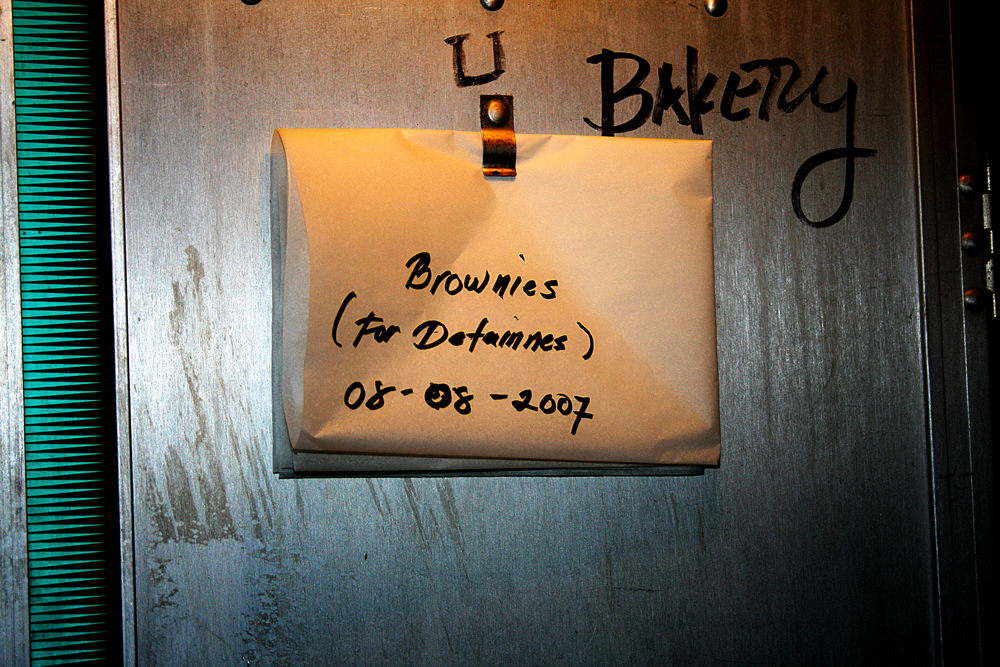 U
BAKERY
Brownies
(For Detainnes)
08-08-2007